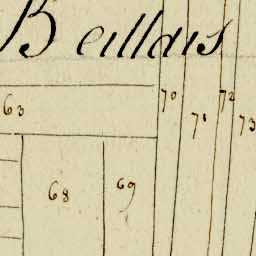 Beillais
63
70
71
72
73
68
69